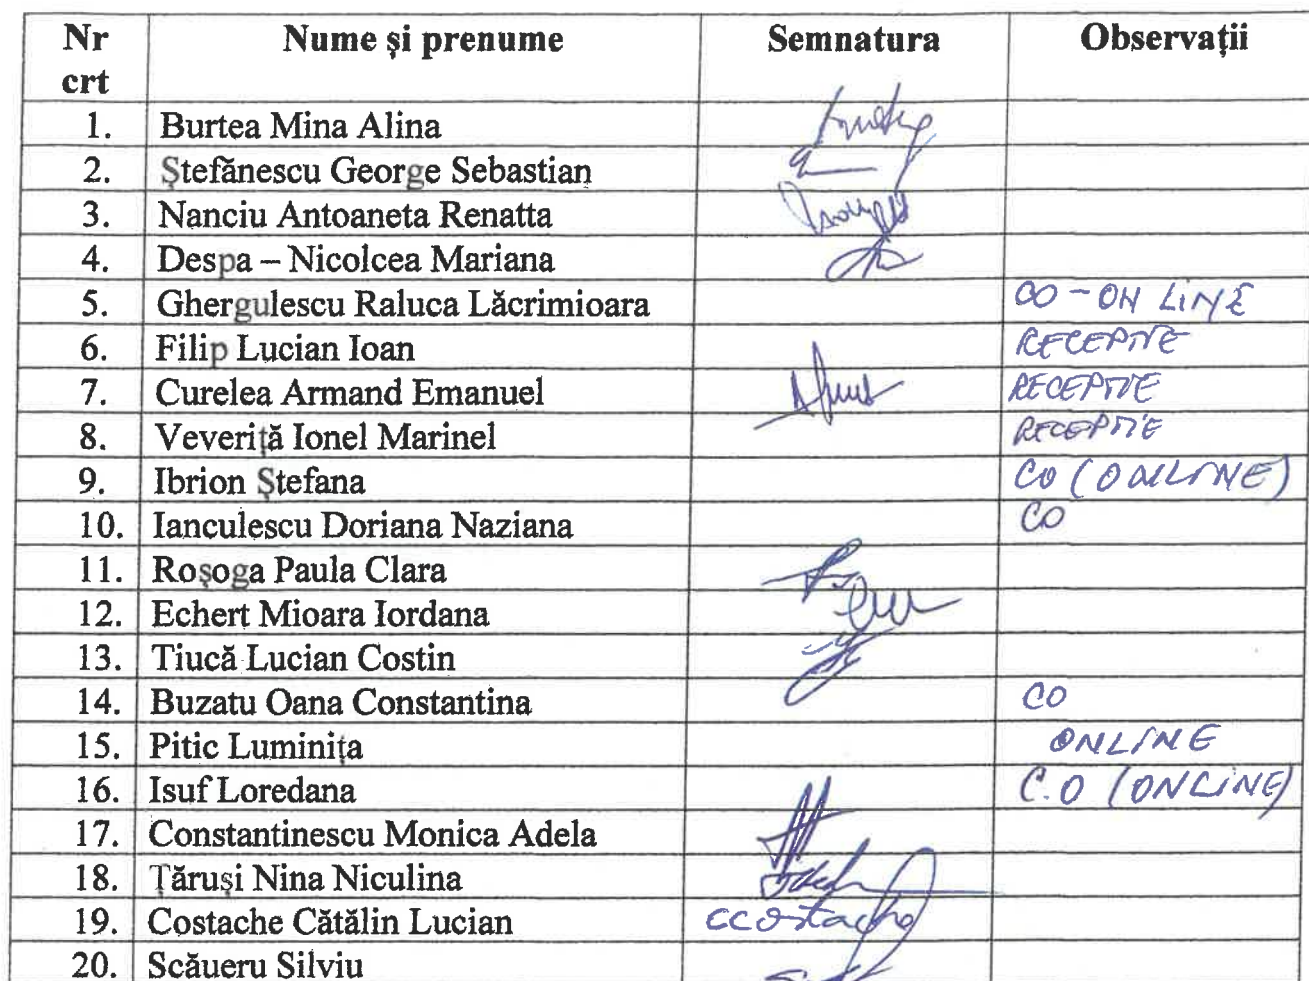 Nr crt Nume și prenume Semnatura Observații
1. Burtea Mina Alina
2. Ștefănescu George Sebastian
3. Nanciu Antoaneta Renatta
4. Despa – Nicolcea Mariana
5. Ghergulescu Raluca Lăcrimioara CO - ON LINE
6. Filip Lucian Ioan RECEPTIE
7. Curelea Armand Emanuel RECEPTIE
8. Veveriță Ionel Marinel RECEPTIE
9. Ibrion Ștefana CO (ONLINE)
10. Ianculescu Doriana Naziana CO
11. Roșoga Paula Clara
12. Echert Mioara Iordana
13. Tiucă Lucian Costin
14. Buzatu Oana Constantina CO
15. Pitic Luminița ONLINE
16. Isuf Loredana C.O (ONLINE)
17. Constantinescu Monica Adela
18. Țăruși Nina Niculina
19. Costache Cătălin Lucian ccostache
20. Scăueru Silviu